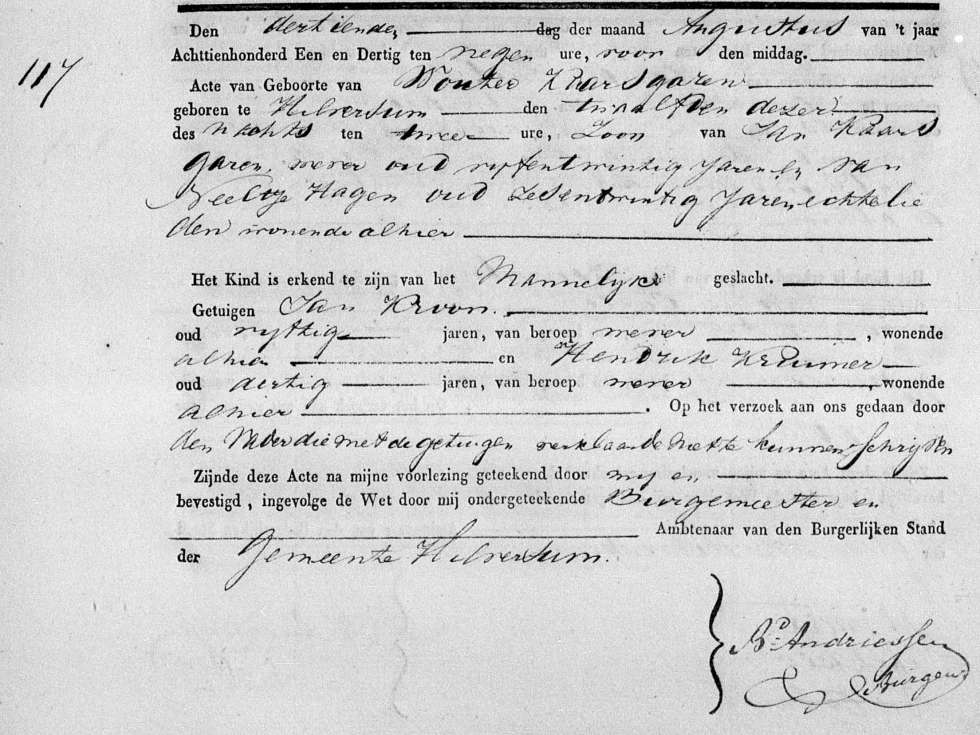 Den dertiende dag der maand Augustus van 't jaar
Achttienhonderd Een en Dertig ten negen ure, voor den middag.
117
Acte van Geboorte van Wouter Kaarsgaren
geboren te Hilversum den twaalfden dezer
des Nachts ten twee ure, Zoon van Jan Kaars
garen, wever oud vyfentwintig Jaren, en van
Neeltje Hagen oud Zesentwintig Jaren echtelie
den wonende alhier
Het Kind is erkend te zijn van het Mannelyke geslacht.
Getuigen Jan Kroon
oud vyftig jaren, van beroep wever, wonende
alhier en Hendrik Kruimer
oud dertig jaren, van beroep wever, wonende
alhier. Op het verzoek aan ons gedaan door
den Vader die met de getuigen verklaarde niet te kunnen Schryven
Zijnde deze Acte na mijne voorlezing geteekend door my en
bevestigd, ingevolge de Wet door mij ondergeteekende Burgemeester en
Ambtenaar van den Burgerlijken Stand
der Gemeente Hilversum.
Bd Andriessen
Burgem